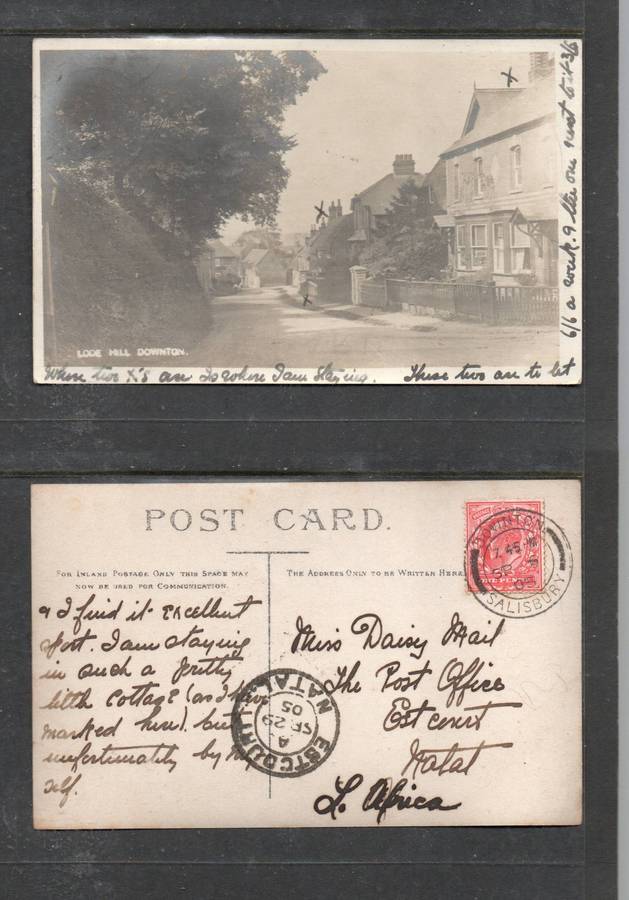 LODE HILL DOWNTON.
Where two X's are is where I am Staying. These two are to let
6/6 a week. & the one next
POST CARD.
FOR INLAND POSTAGE ONLY THIS SPACE MAY
NOW BE USED FOR COMMUNICATION.
THE ADDRESS ONLY TO BE WRITTEN HERE
& I find it excellent
sport. I am staying
in such a pretty
little cottage (as I have
marked here). but
unfortunately by my
self.
Miss Daisy Mail
The Post Office
Estcourt
Natal
S. Africa
ONE PENNY
DOWNTON
7.45 PM
SP
05
SALISBURY
ESTCOURT
A
SE 29
05
NATAL